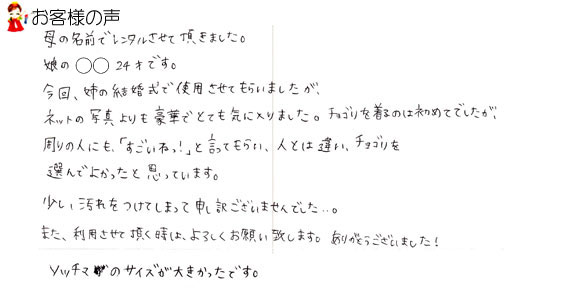 お客様の声
母の名前でレンタルさせて頂きました。
娘の〇〇 24才です。
今回、姉の結婚式で使用させてもらいましたが、
ネットの写真よりも豪華でとても気に入りました。チョゴリを着るのは初めてでしたが、
周りの人にも、「すごいねっ!」と言ってもらい、人とは違い、チョゴリを
選んでよかったと思っています。
少し、汚れをつけてしまって申し訳ございませんでした…。
また、利用させて頂く時は、よろしくお願い致します。ありがとうございました!
ソッチマのサイズが大きかったです。